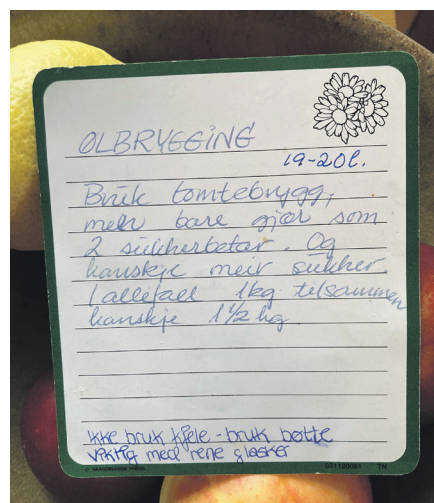 ØLBRYGGING
19-20l.
Bruk tomtebrygg,
men bare gjør som
2 sukkerbetar. Og
kanskje meir sukker.
I allefall 1kg tilsammen
kanskje 1 1/2 kg
ikke bruk kjele - bruk bøtte
viktig med rene glasker
© SKANDINAVISK PRESS
031120081 TN